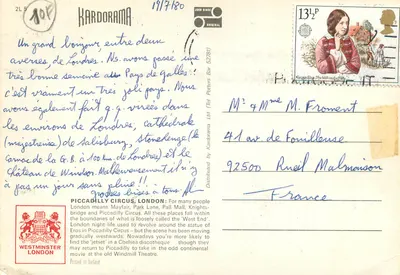 10F
KARDORAMA
19/7/80
13½P
Un grand bonjour entre deux
averses, de Londres. Ns. avons passé une
très bonne semaine au Pays de Galles :
c'est vraiment un très joli pays. Nous
avons également fait q.q. virées dans
les environs de Londres, Cathédrale
(majestueuse) de Salisbury, Stonehenge (le
Carnac de la G.B. à 100 km de Londres) et le
Château de Windsor. Malheureusement il n'y
a pas un jour sans pluie !!.
Grosses bises à tous.
PICCADILLY CIRCUS, LONDON: For many people
London means Mayfair, Park Lane, Pall Mall, Knights-
bridge and Piccadilly Circus. All these places fall within
the boundaries of what is loosely called the 'West End'.
London night life used to revolve around the statue of
Eros in Piccadilly Circus—but the scene has been moving
gradually westwards. Nowadays you're more likely to
find the 'jetset' in a Chelsea discotheque though they
may return to Piccadilly to take in the odd continental
movie at the old Windmill Theatre.
Printed in Ireland
WESTMINSTER
LONDON
Distributed by Kardorama Ltd The Potters Bar 52260
Mr & Mme M. Froment
41 av. de Fouilleuse
92500 Rueil Malmaison
France